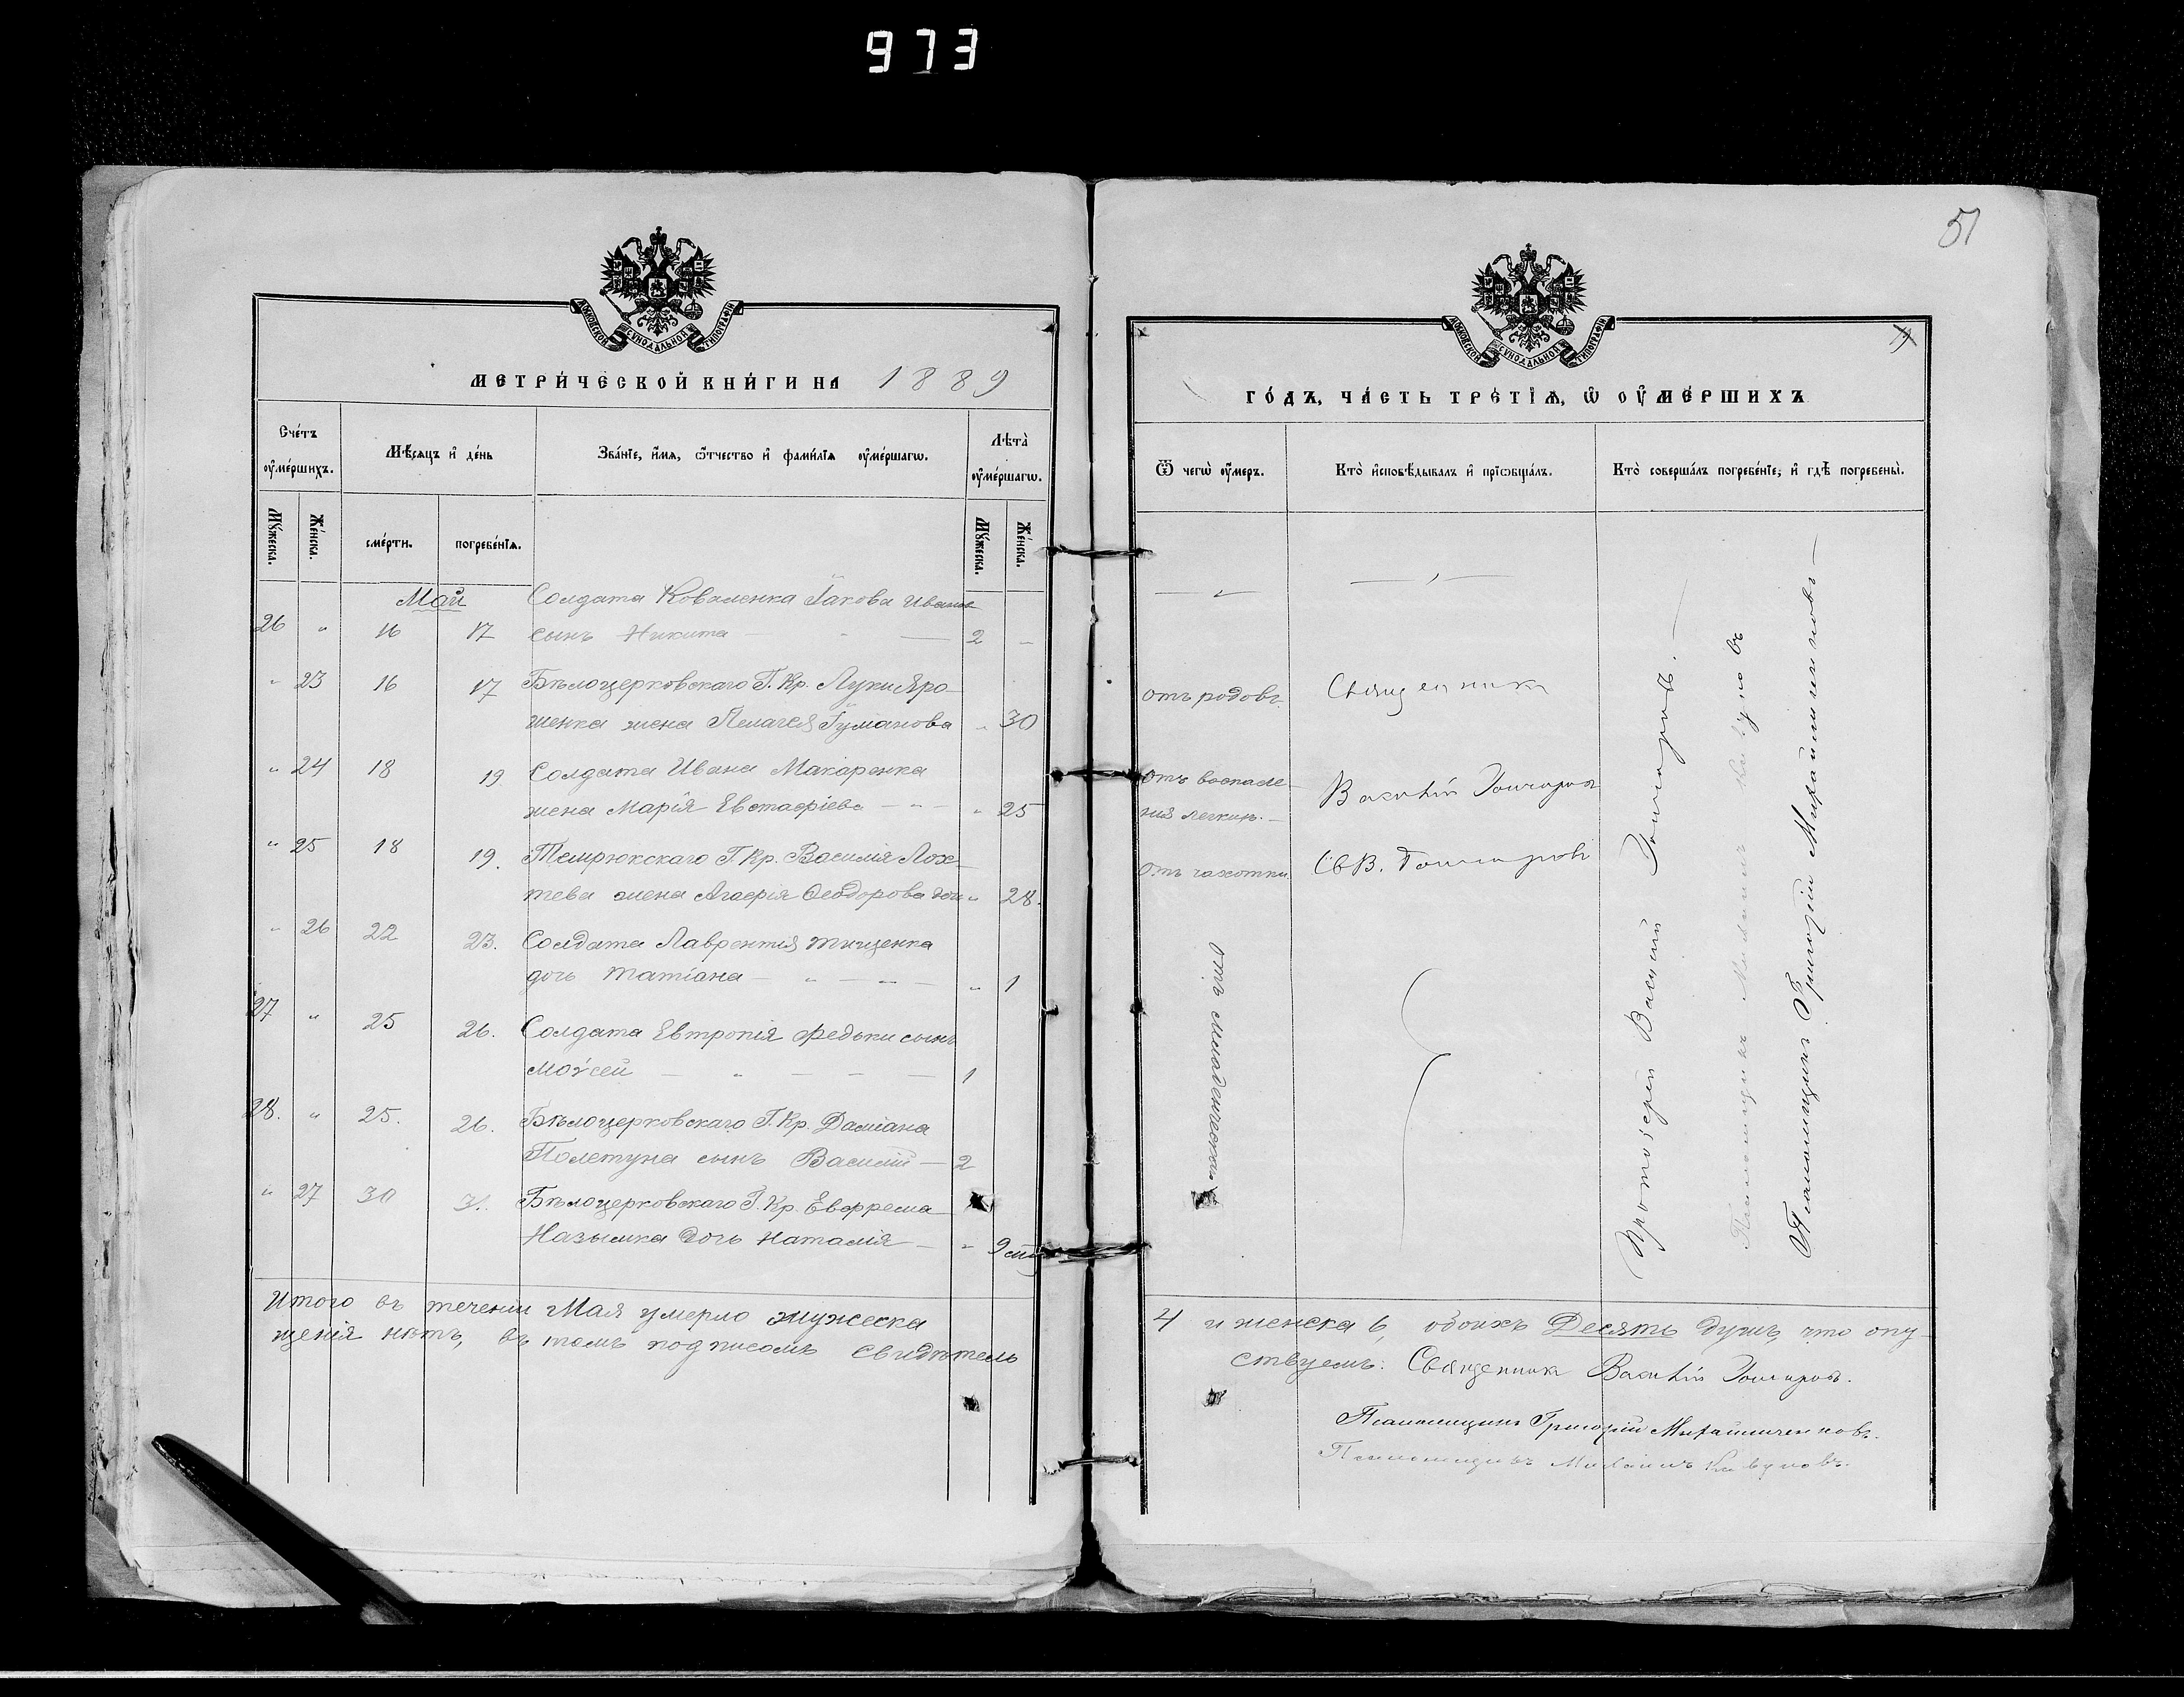 973
51
МОСКОВСКОЙ СУНОДАЛЬНОЙ ТИПОГРАФІИ
МЕТРИ́ЧЕСКОЙ КНИ́ГИ НА 1889
Сче́тъ ᲂу҆ме́ршихъ.
Мѣ́сяцъ и҆ де́нь
Зва́нїе, и҆́мѧ, ѻ҆́тчество и҆ фами́лїѧ ᲂу҆ме́ршагѡ.
Лѣта̀ ᲂу҆ме́ршагѡ.
Мꙋ́жеска.
Же́нска.
сме́рти.
погребе́нїѧ.
Мꙋ́жеска.
Же́нска.
Май
Солдата Коваленка Іакова Иванов
26 " 16 17 сынъ Никита — " — 2 —
" 23 16 17 Бѣлоцерковскаго Г. Кр. Луки Яро
шенка жена Пелагея Туманова " 30
" 24 18 19 Солдата Ивана Макаренка
жена Марія Евстафіева — " — " 25
" 25 18 19. Темрюкскаго Г Кр. Василія Лох-
тева жена Агафія Феодорова " 28.
" 26 22 23. Солдата Лаврентія Тищенка
дочь Татіана — " — " — " 1
27 " 25 26. Солдата Евтропія Федьки сынъ
Моѵсей — " — — — 1
28. " 25. 26. Бѣлоцерковскаго Г. Кр. Даміана
Полетуна сынъ Василій — 2
" 27 30 31. Бѣлоцерковскаго Г. Кр. Евфрема
Назымка дочь Наталія — " 9
Итого въ теченіи Мая умерло мужеска
щенія нѣтъ, въ томъ подписомъ свидѣтель
МОСКОВСКОЙ СУНОДАЛЬНОЙ ТИПОГРАФІИ
ГО́ДЪ, ЧА́СТЬ ТРЕ́ТЇѦ, Ѡ҆ ОУ҆МЕ́РШИХЪ
Ѿ чегѡ̀ ᲂу҆́меръ.
Кто̀ и҆сповѣ́дывалъ и҆ прїѡбща́лъ.
Кто̀ соверша́лъ погребе́нїе, и҆ гдѣ̀ погребены̀.
отъ родовъ
Священникъ
отъ воспале-
нія легкихъ. —
Василій Гончаровъ
отъ чахотки
Св В. Гончаровъ
отъ младенческой
Протоіерей Василій Гончаровъ. —
Псаломщикъ Михаилъ
Псаломщикъ Григорій Мирашниченковъ —
4 и женска 6, обоихъ Десять душъ, что опу-
ствуемъ: Священникъ Василій Гончаровъ.
Псаломщикъ Григорій Мирашниченковъ.
Псаломщикъ Михаилъ